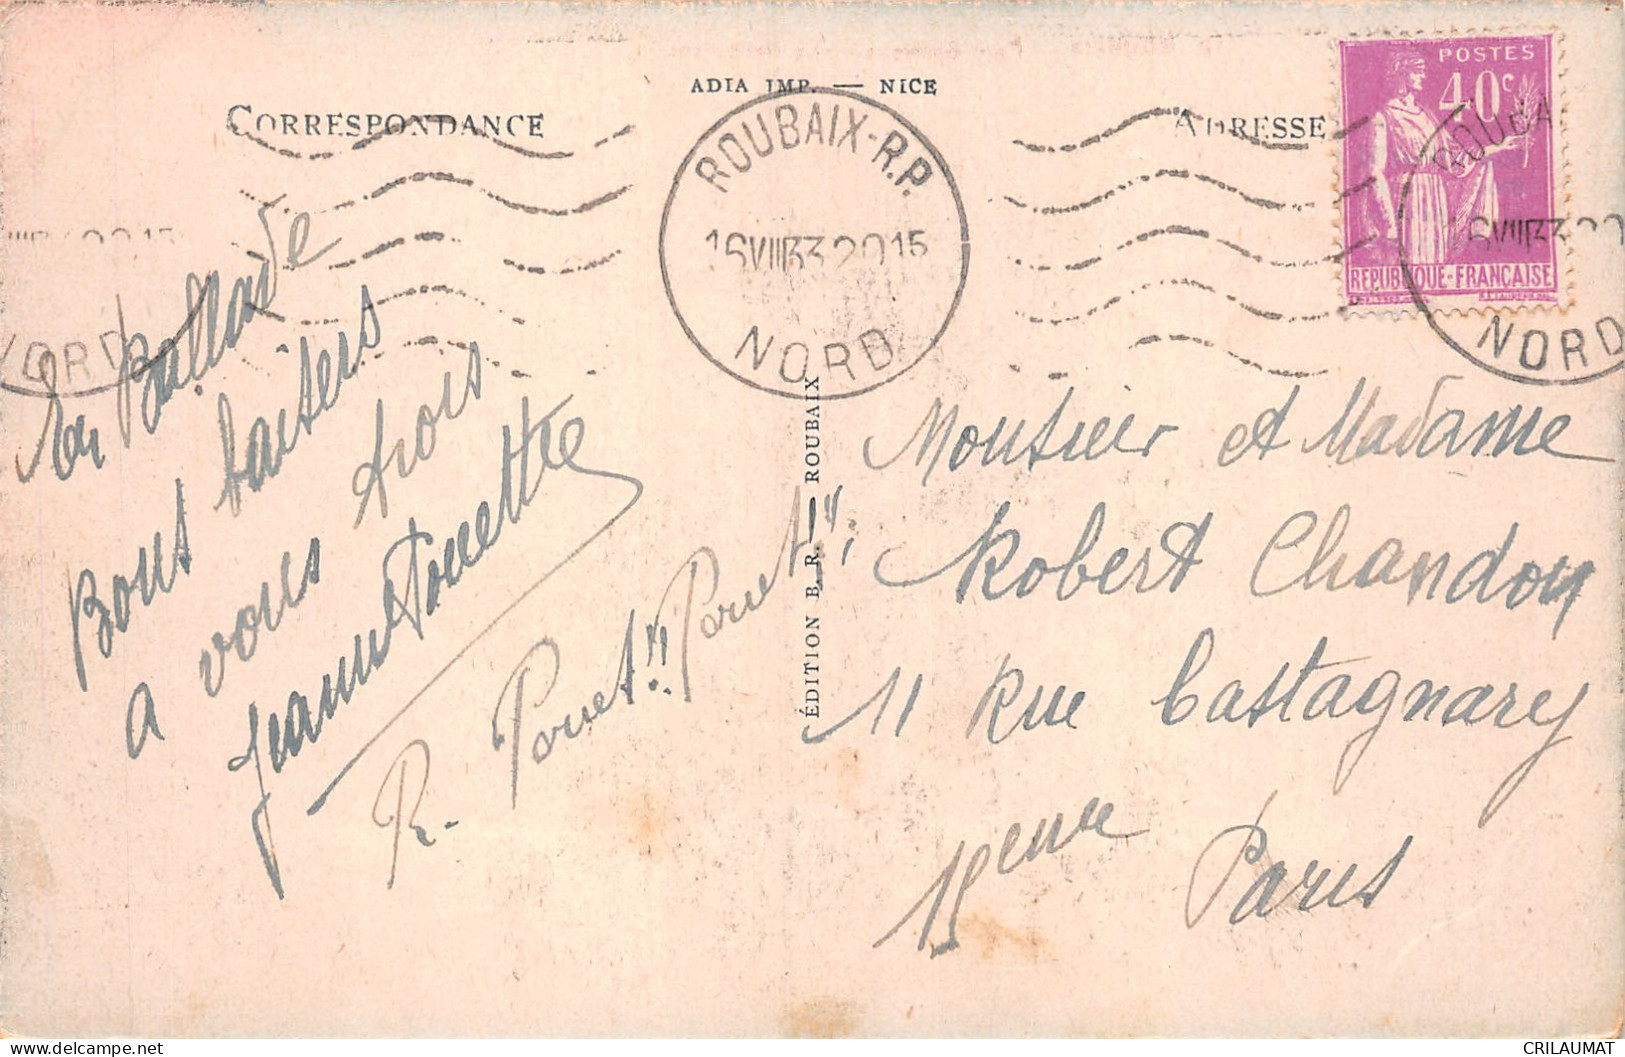 ADIA IMP. — NICE
CORRESPONDANCE
ADRESSE
POSTES
40c
REPUBLIQUE-FRANÇAISE
ROUBAIX-R.P.
16VIII33 2015
NORD
ROUBA
16VIII33 20
NORD
NORD
ÉDITION B. R. — ROUBAIX
En Ballade
Bons baisers
a vous trois
Jeanne
R. Pouet" Pouet";
Monsieur et Madame
Robert Chandon
11 Rue Castagnary
15eme
Paris
CRILAUMAT